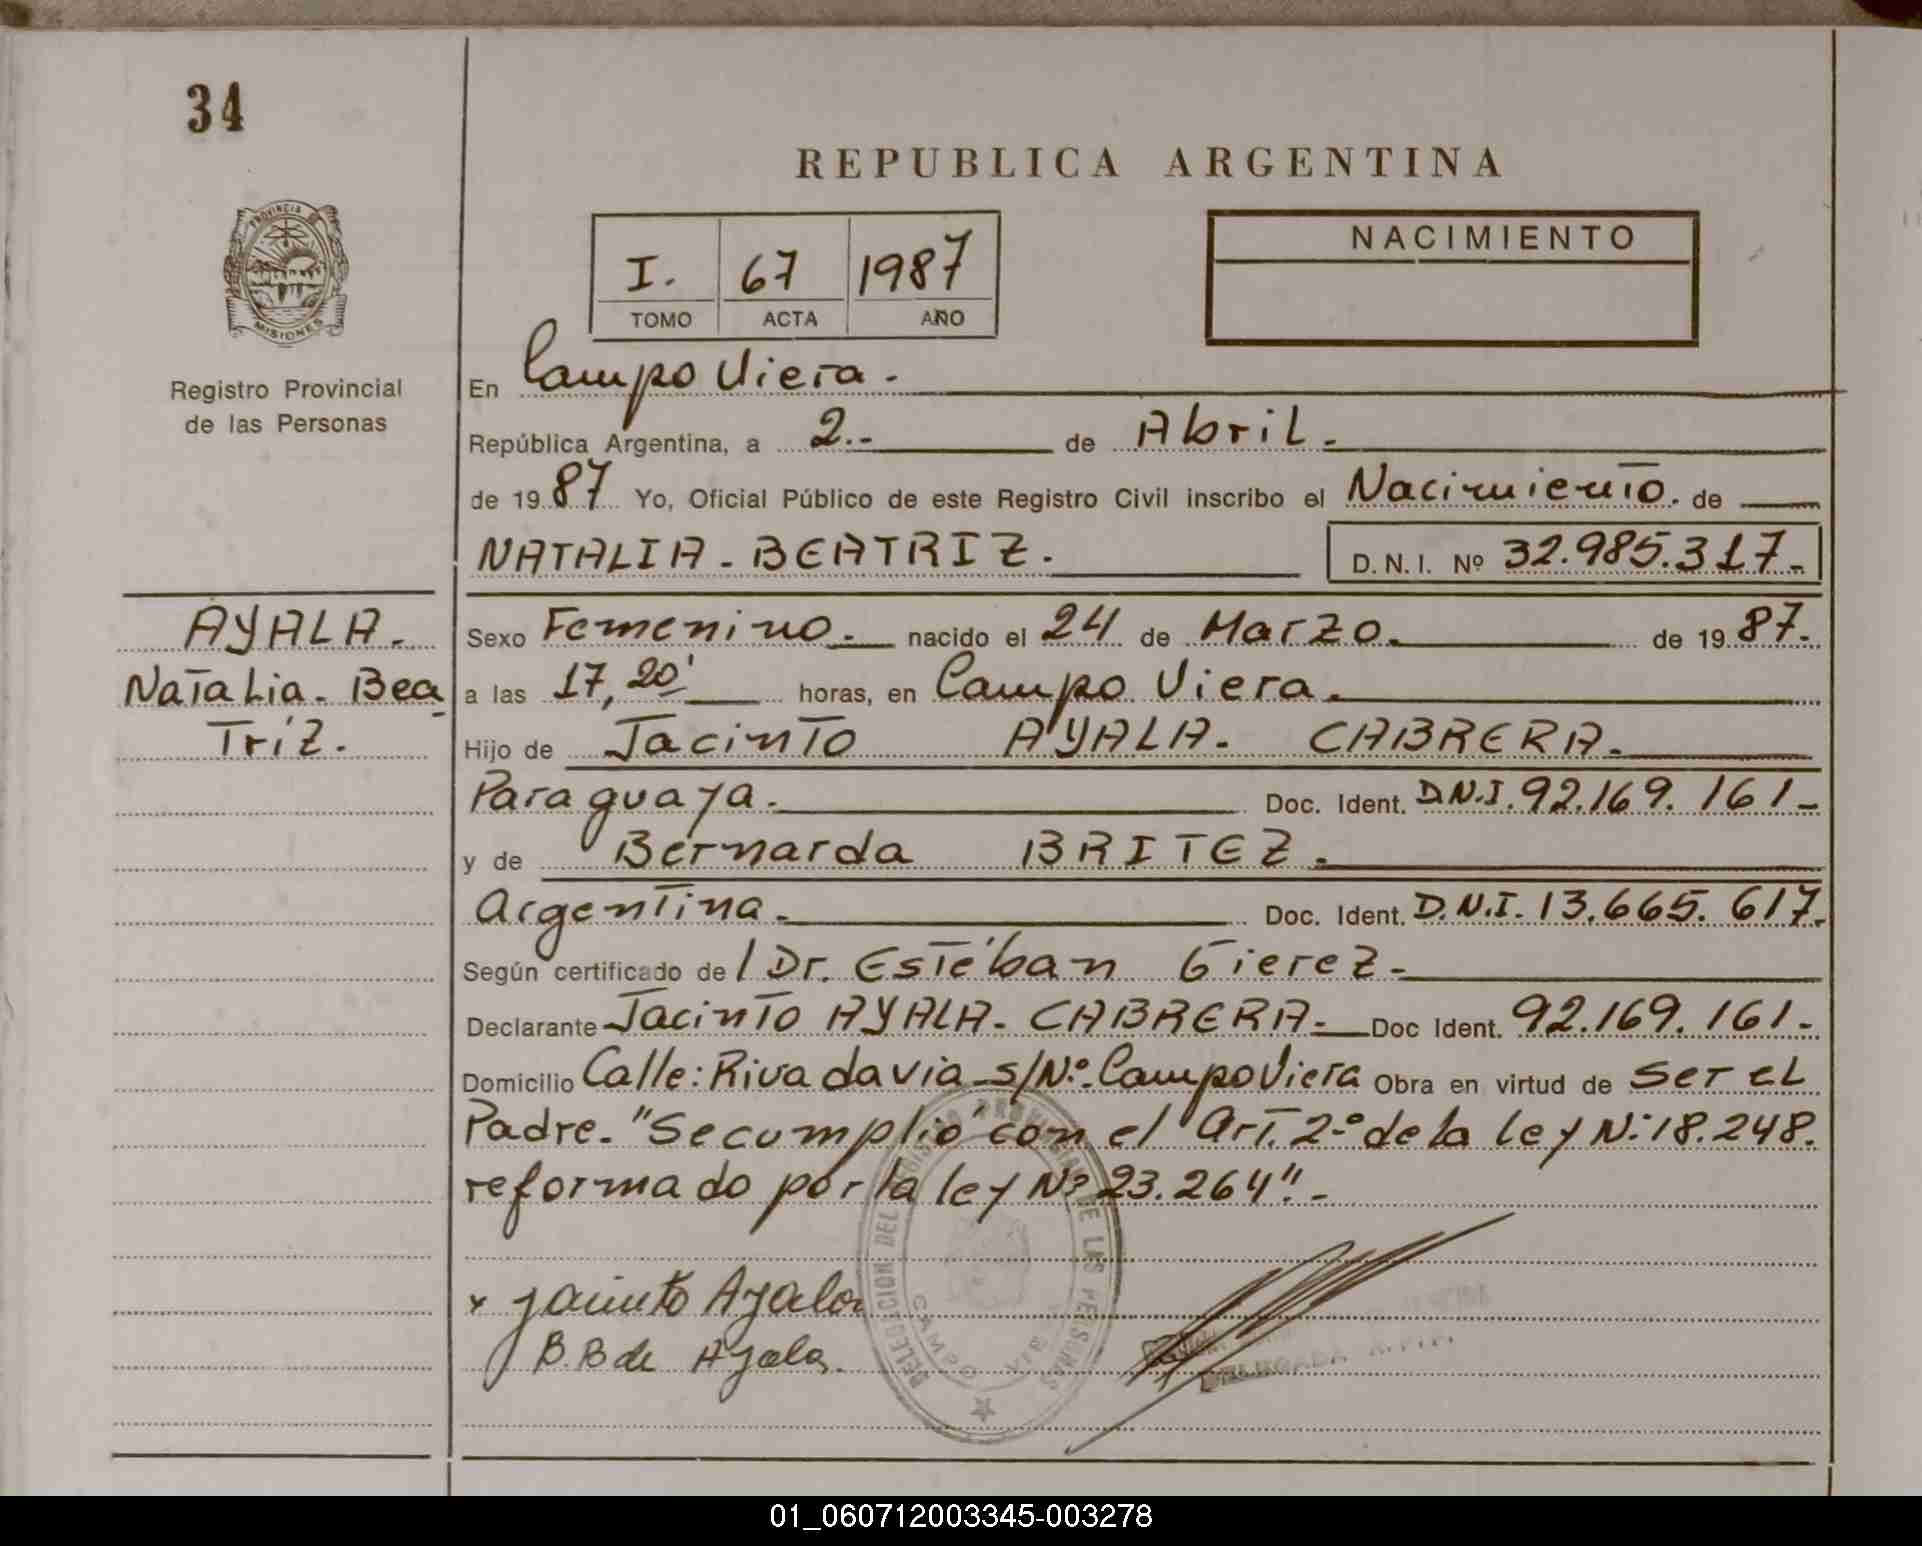 34
REPUBLICA ARGENTINA
PROVINCIA
MISIONES
Registro Provincial
de las Personas
I. 67 1987
TOMO ACTA AÑO
NACIMIENTO
En Campo Viera.
República Argentina, a 2.- de Abril.
de 19 87 Yo, Oficial Público de este Registro Civil inscribo el Nacimiento. de
NATALIA - BEATRIZ. D. N. I. Nº 32.985.317.-
AYALA.
Natalia - Bea
Triz.
Sexo Femenino. nacido el 24 de Marzo. de 19 87.
a las 17,20' horas, en Campo Viera.
Hijo de Jacinto AYALA. CABRERA.
Paraguaya. Doc. Ident. D.N.I. 92.169.161-
y de Bernarda BRITEZ.
Argentina. Doc. Ident. D.N.I. 13.665.617.
Según certificado de / Dr. Estéban Gierez.
Declarante Jacinto AYALA - CABRERA. Doc Ident. 92.169.161.
Domicilio Calle: Rivadavia s/Nº. Campo Viera Obra en virtud de ser el
Padre. "Se cumplió con el Art. 2º de la ley Nº 18.248.
reformado por la ley Nº 23.264".-
DELEGACION DEL REGISTRO PROVINCIAL DE LAS PERSONAS
CAMPO VIERA
x Jacinto Ayala
B. B de Ayala.
DELEGADA R.P.P.
01_060712003345-003278